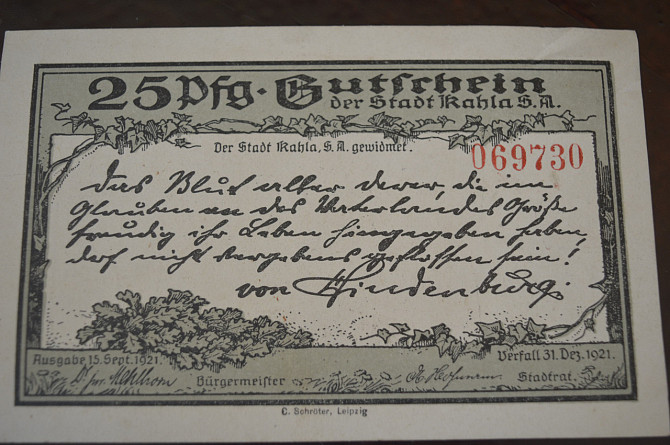 25 Pfg. Gutschein
der Stadt Kahla S. A.
Der Stadt Kahla, S. A. gewidmet.
069730
Das Blut aller derer, die im
Glauben an des Vaterlandes Größe
freudig ihr Leben hingegeben haben,
darf nicht vergebens geflossen sein!
von Hindenburg.
Ausgabe 15. Sept. 1921.
Verfall 31. Dez. 1921.
Bürgermeister
Stadtrat.
C. Schröter, Leipzig